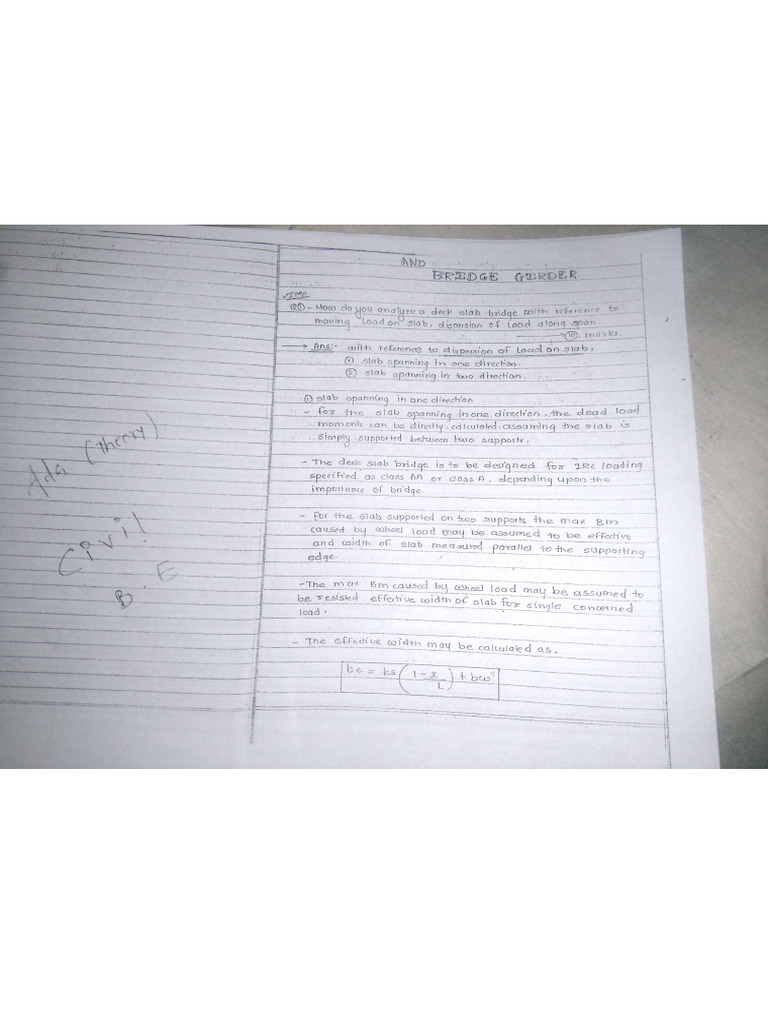 Ada (theory)
Civil
B.E
AND
BRIDGE GIRDER
VIMP
Q① - How do you analyze a deck slab bridge with reference to
moving load on slab, dispersion of load along span
⑩ marks.
→ Ans:- with reference to dispersion of load on slab,
① slab spanning in one direction.
② slab spanning in two direction.
① slab spanning in one direction
- for the slab spanning in one direction, the dead load
moments can be directly calculated assuming the slab is
simply supported between two supports.
- The deck slab bridge is to be designed for IRC loading
specified as class AA or class A, depending upon the
importance of bridge.
- for the slab supported on two supports the max Bm
caused by wheel load may be assumed to be effective
and width of slab measured parallel to the supporting
edge.
- The max Bm caused by wheel load may be assumed to
be resisted effective width of slab for single concerned
load.
- The effective width may be calculated as,
be = ks (1-x/L) + bw